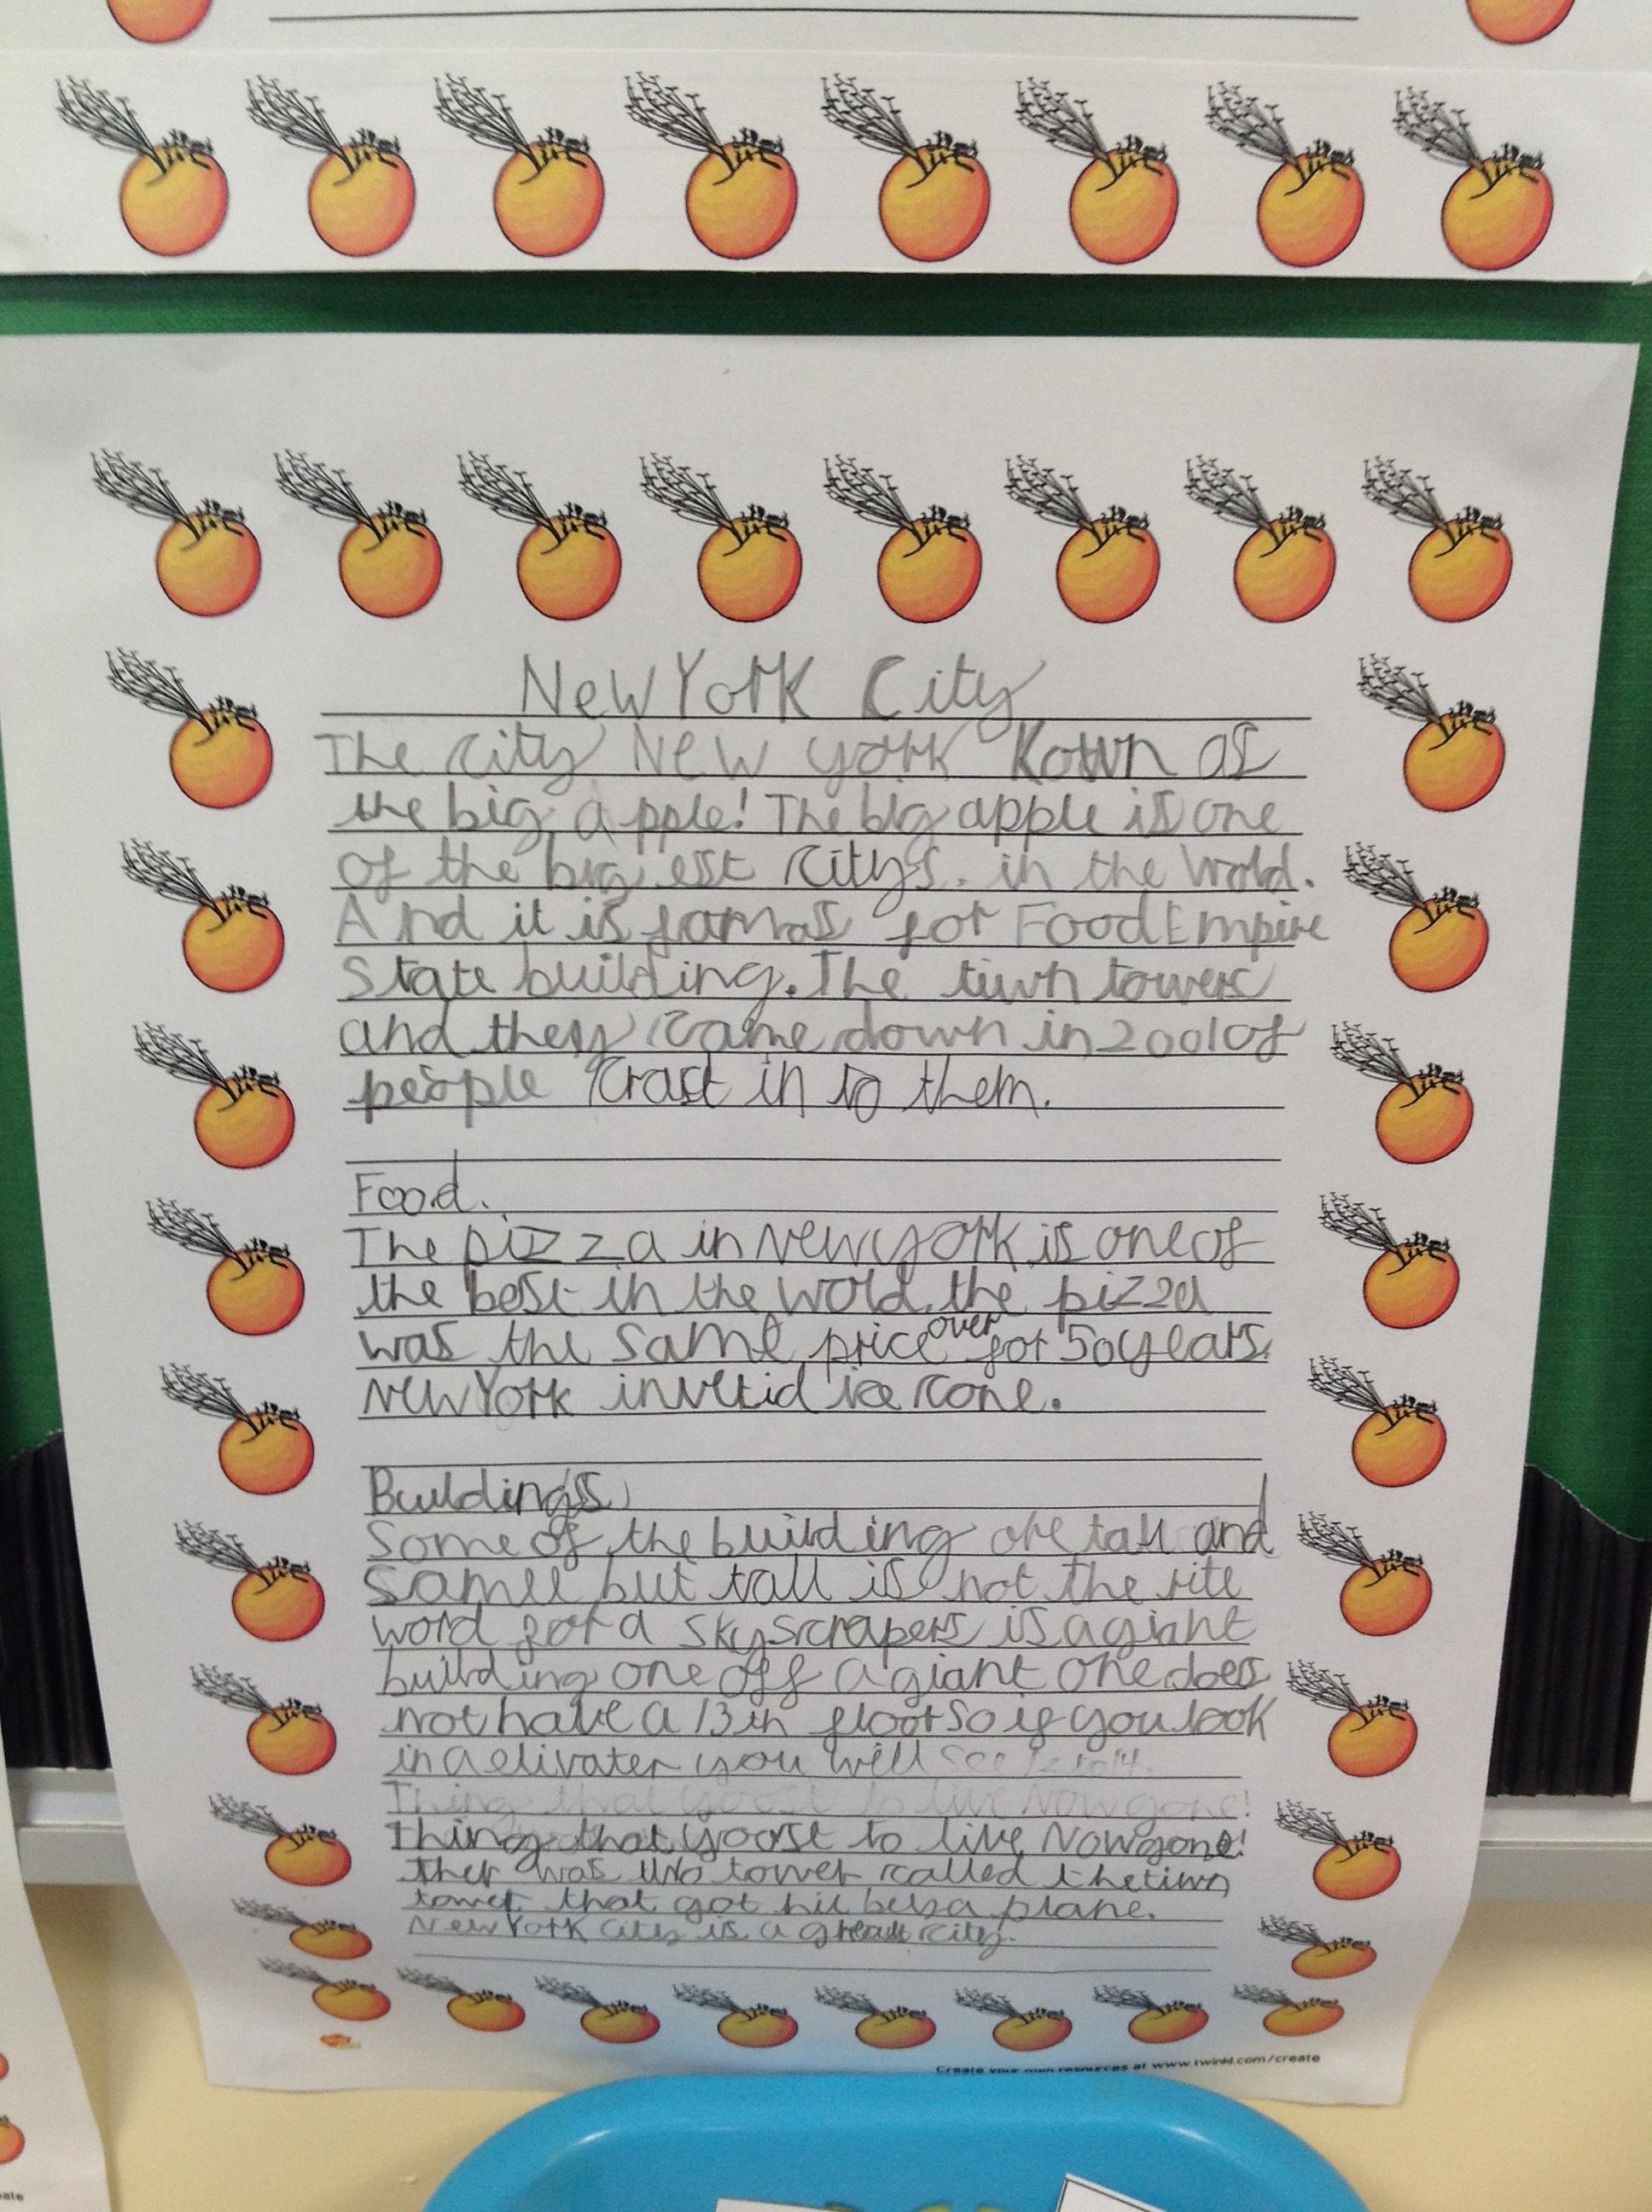 New York City
The city New york Kown as
the big apple! The big apple is one
of the biggest citys. in the wrold.
And it is famas for Food Empire
State building. The tiwn towers
and they came down in 2001 of
people crast in to them.
Food.
The pizza in New york is one of
the best in the wold. the pizza
was the same price over for 50 years.
New York invetid ice cone.
Buildings
Some of the building are tall and
samll but tall is not the rite
word for a skyscrapers is a giant
building one off a giant one does
not have a 13th floor so if you look
in a elivater you will see 12 to 14.
Thing that yoost to live Now gone!
Thing that yoost to live Now gone!
ther was two tower called the tiwn
tower that got hit by a plane.
New York city is a great city.
Create your own resources at www.twinkl.com/create